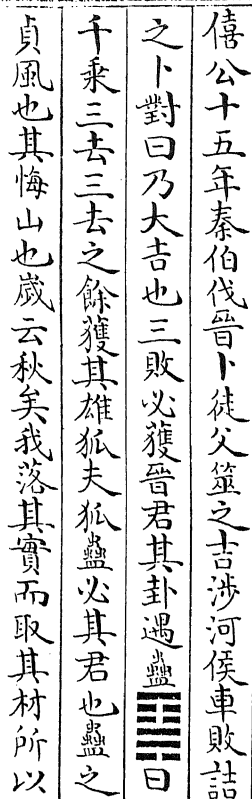 僖公十五年秦伯伐晉卜徒父筮之吉涉河侯車敗詰
之卜對曰乃大吉也三敗必獲晉君其卦遇蠱䷑曰
千乘三去三去之餘獲其雄狐夫狐蠱必其君也蠱之
貞風也其悔山也歲云秋矣我落其實而取其材所以